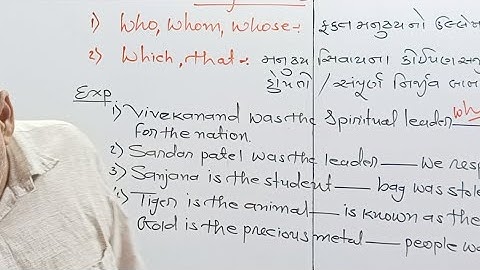 1) Who, whom, whose :- ફક્ત મનુષ્યનો ઉલ્લેખ
2) Which, that :- મનુષ્ય સિવાયના કોઈપણ
હોય તો / સંપૂર્ણ નિર્જીવ
Exp
1) Vivekanand was the Spiritual leader who
for the nation.
2) Sardar patel was the leader ___ we resp
3) Sanjana is the student ___ bag was stole
4) Tiger is the animal ___ is known as the
Gold is the precious metal ___ people wa